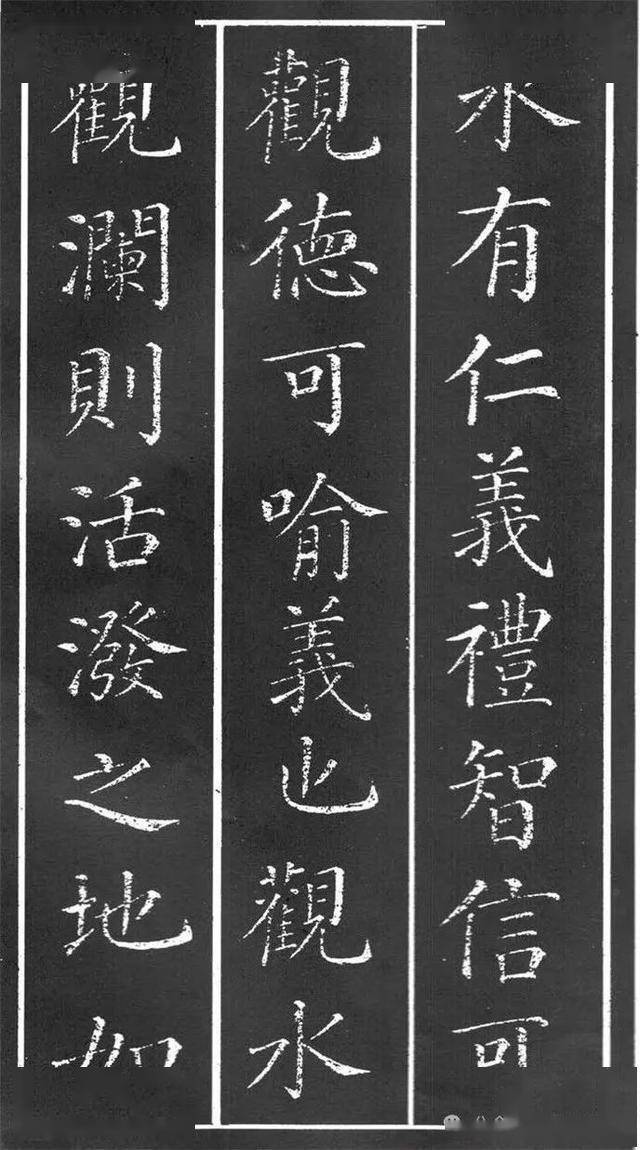 水有仁義禮智信可
觀德可喻義也觀水
觀瀾則活潑之地如